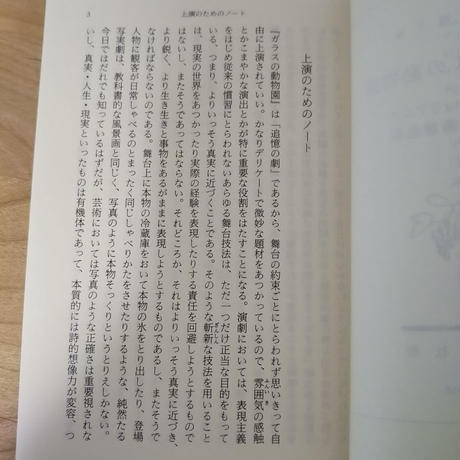 3
上演のためのノート
上演のためのノート
『ガラスの動物園』は「追憶の劇」であるから、舞台の約束ごとにとらわれず思いきって自
由に上演されていい。かなりデリケートで微妙な題材をあつかっているので、雰囲気の感触
とかこまやかな演出とかが特に重要な役割をはたすことになる。演劇においては、表現主義
をはじめ従来の慣習にとらわれないあらゆる舞台技法は、ただ一つだけ正当な目的をもって
いる、つまり、よりいっそう真実に近づくことである。そのような斬新な技法を用いること
は、現実の世界をあつかったり実際の経験を表現したりする責任を回避しようとするもので
はないし、またそうであってはならない。それどころか、それはよりいっそう真実に近づき、
より鋭く、より生き生きと事物をあるがままに表現しようとするものであるし、またそうで
なければならないのである。舞台上に本物の冷蔵庫をおいて本物の氷をとり出したり、登場
人物に観客が日常しゃべるのとまったく同じしゃべりかたをさせたりするような、純然たる
写実劇は、教科書的な風景画と同じく、写真のように本物そっくりというとりえしかない。
今日ではだれでも知っているはずだが、芸術においては写真のような正確さは重要視されな
いし、真実・人生・現実といったものは有機体であって、本質的には詩的想像力が変容、つ